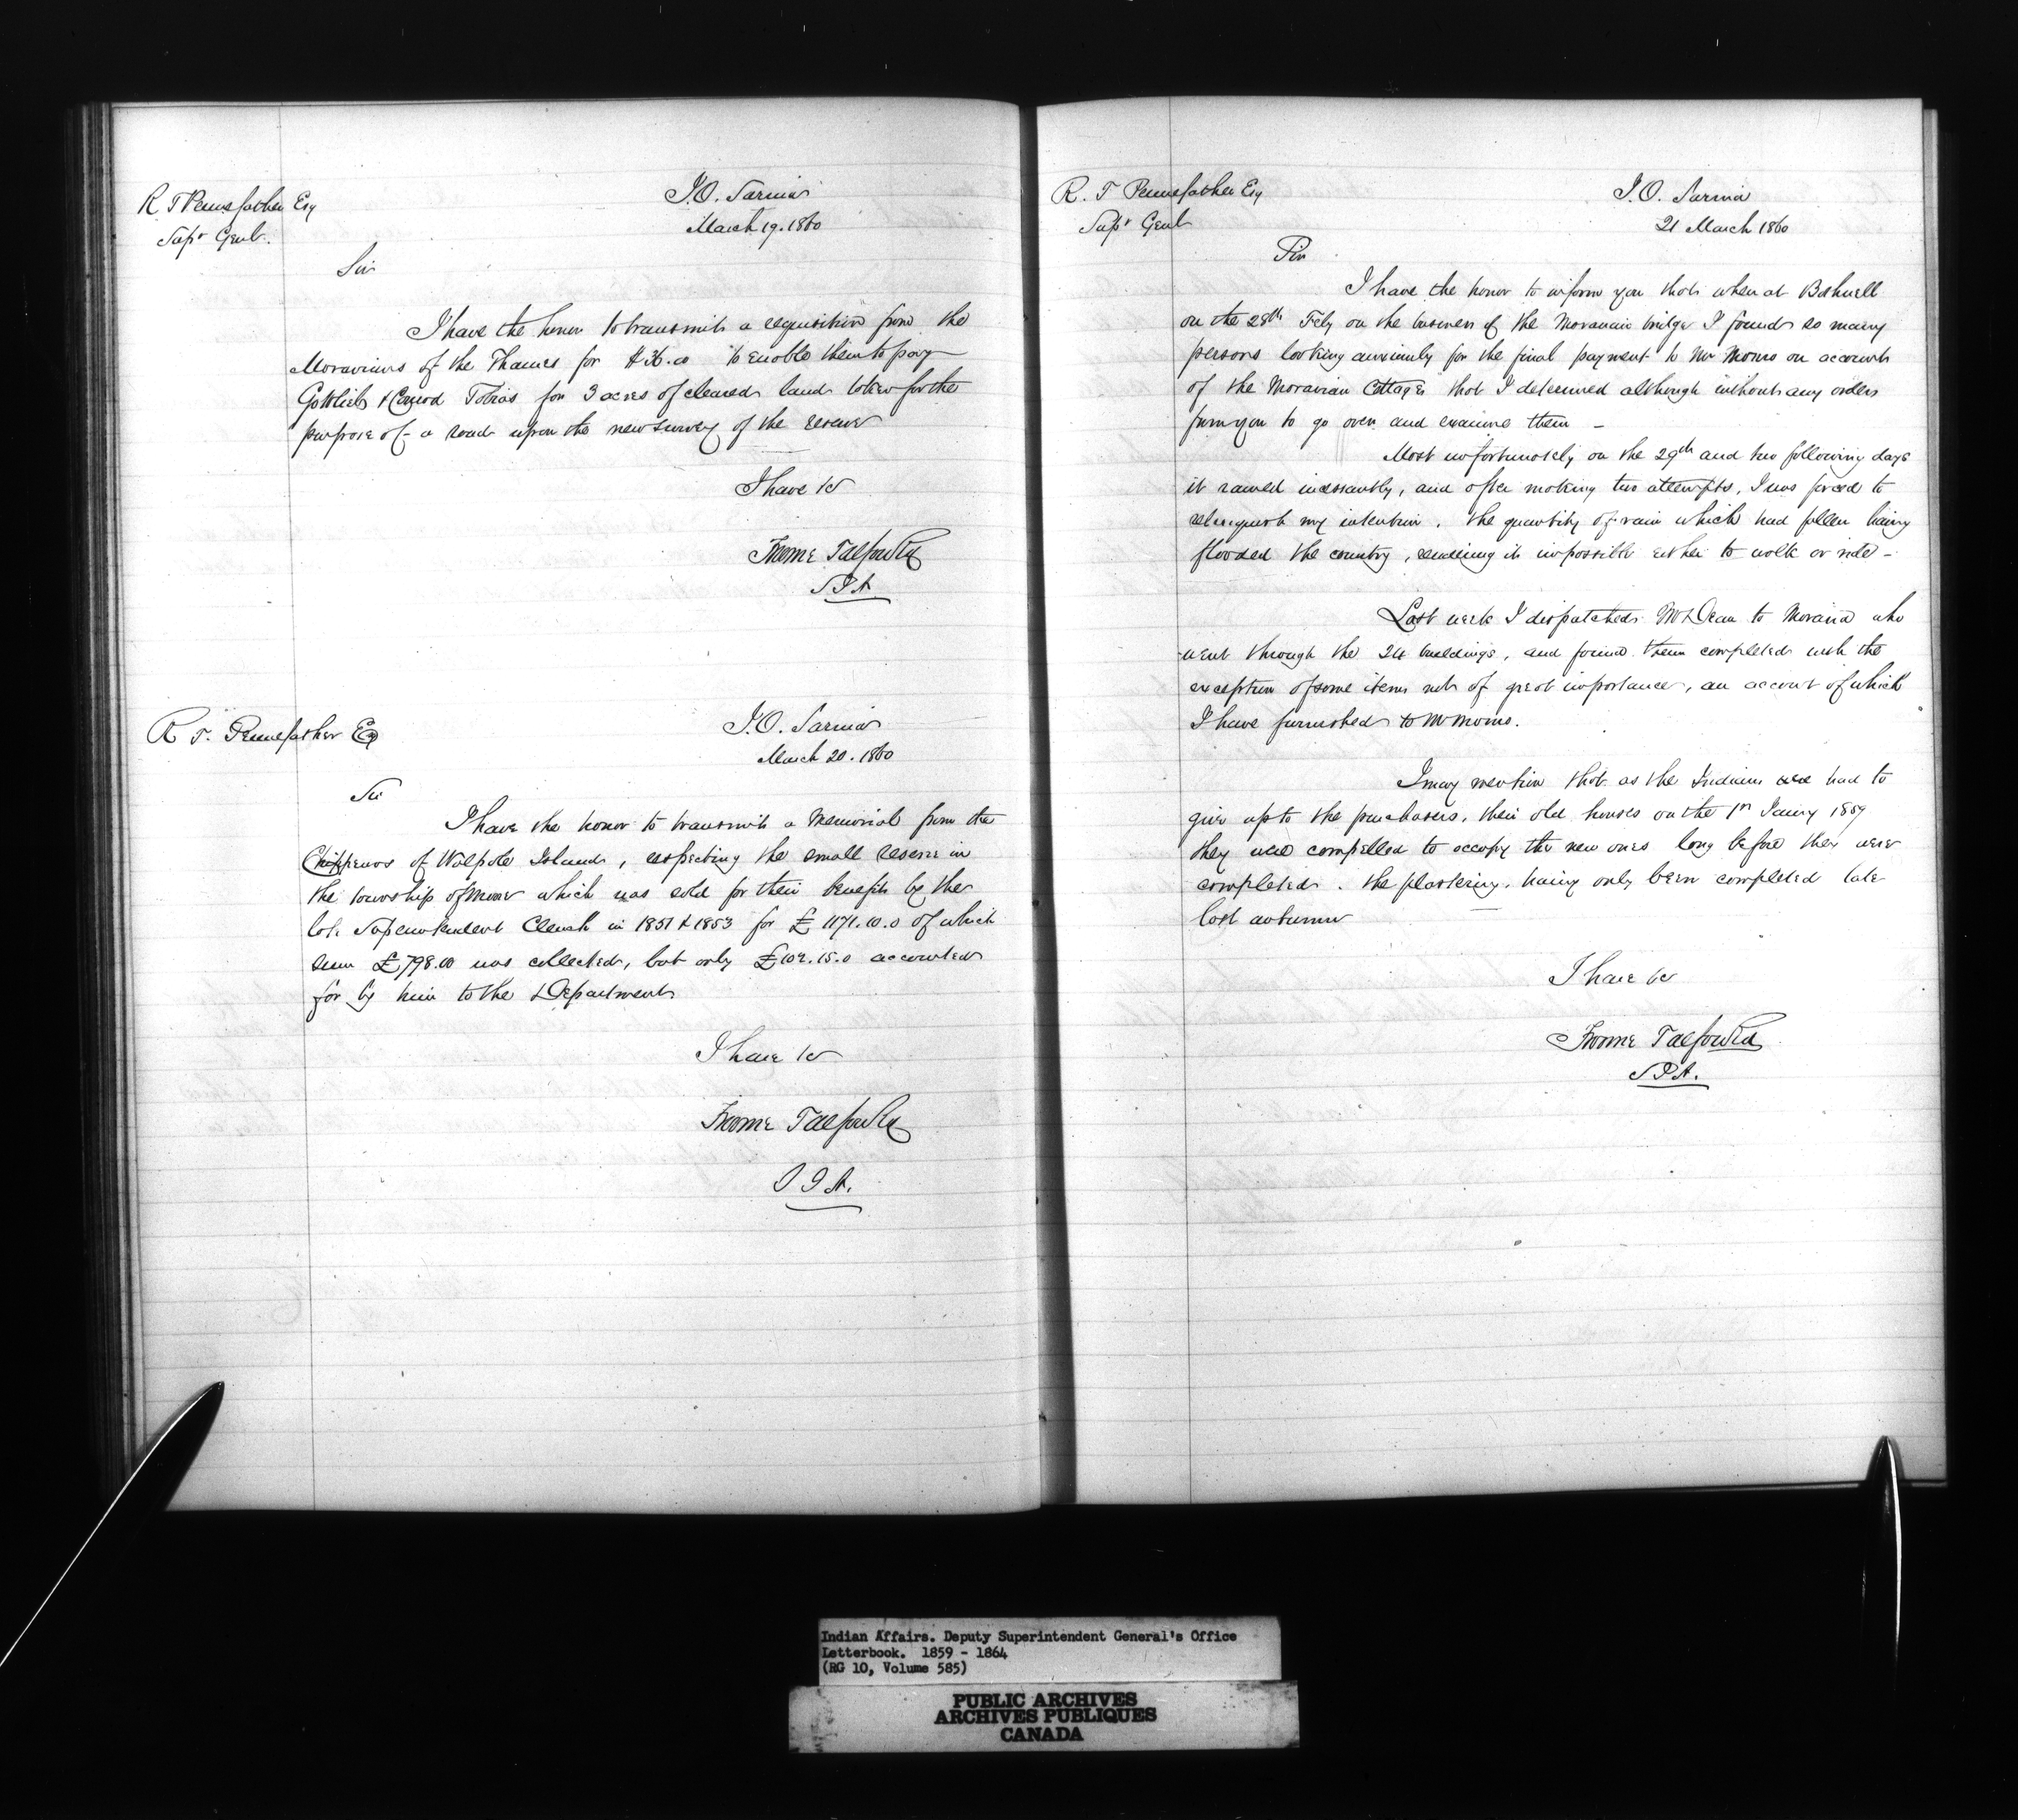 R T Pennefather Esq
Supt Genl.
I.O. Sarnia
March 19. 1860
Sir
I have the honor to transmit a requisition from the
Moravians of the Thames for $36.00 to enable them to pay
Gottlieb & Conrod Tobias for 3 acres of cleared land taken for the
purpose of a road upon the new survey of the reserve
I have &c
Froome Talfourd
S I A
R T. Pennefather Esq
I.O. Sarnia
March 20. 1860
Sir
I have the honor to transmit a Memorial from the
Chippewas of Walpole Island, respecting the small reserve in
the township of Moore which was sold for their benefit by the
late Superintendent Clench in 1851 & 1853 for £1171.10.0 of which
sum £798.00 was collected, but only £102.15.0 accounted
for by him to the Department
I have &c
Froome Talfourd
S I A.
R. T Pennefather Esq
Supt Genl
I.O. Sarnia
21 March 1860
Sir
I have the honor to inform you that when at Bothwell
on the 28th Feby on the business of the Moravian bridge I found so many
persons looking anxiously for the final payment to Mr Morris on account
of the Moravian Cottages that I determined although without any orders
from you to go over and examine them –
Most unfortunately on the 29th and two following days
it rained incessantly, and after making two attempts, I was forced to
relinquish my intention, the quantity of rain which had fallen having
flooded the country, rendering it impossible either to walk or ride –
Last week I dispatched Mr Dean to Moravia who
went through the 24 buildings, and found them completed with the
exception of some items not of great importance, an account of which
I have furnished to Mr Morris.
I may mention that as the Indians had to
give up to the purchasers, their old houses on the 1st Janry 1859
they were compelled to occupy the new ones long before they were
completed. the plastering, having only been completed late
last autumn
I have &c
Froome Talfourd
S I A.
Indian Affairs. Deputy Superintendent General's Office
Letterbook. 1859 - 1864
(RG 10, Volume 585)
PUBLIC ARCHIVES
ARCHIVES PUBLIQUES
CANADA